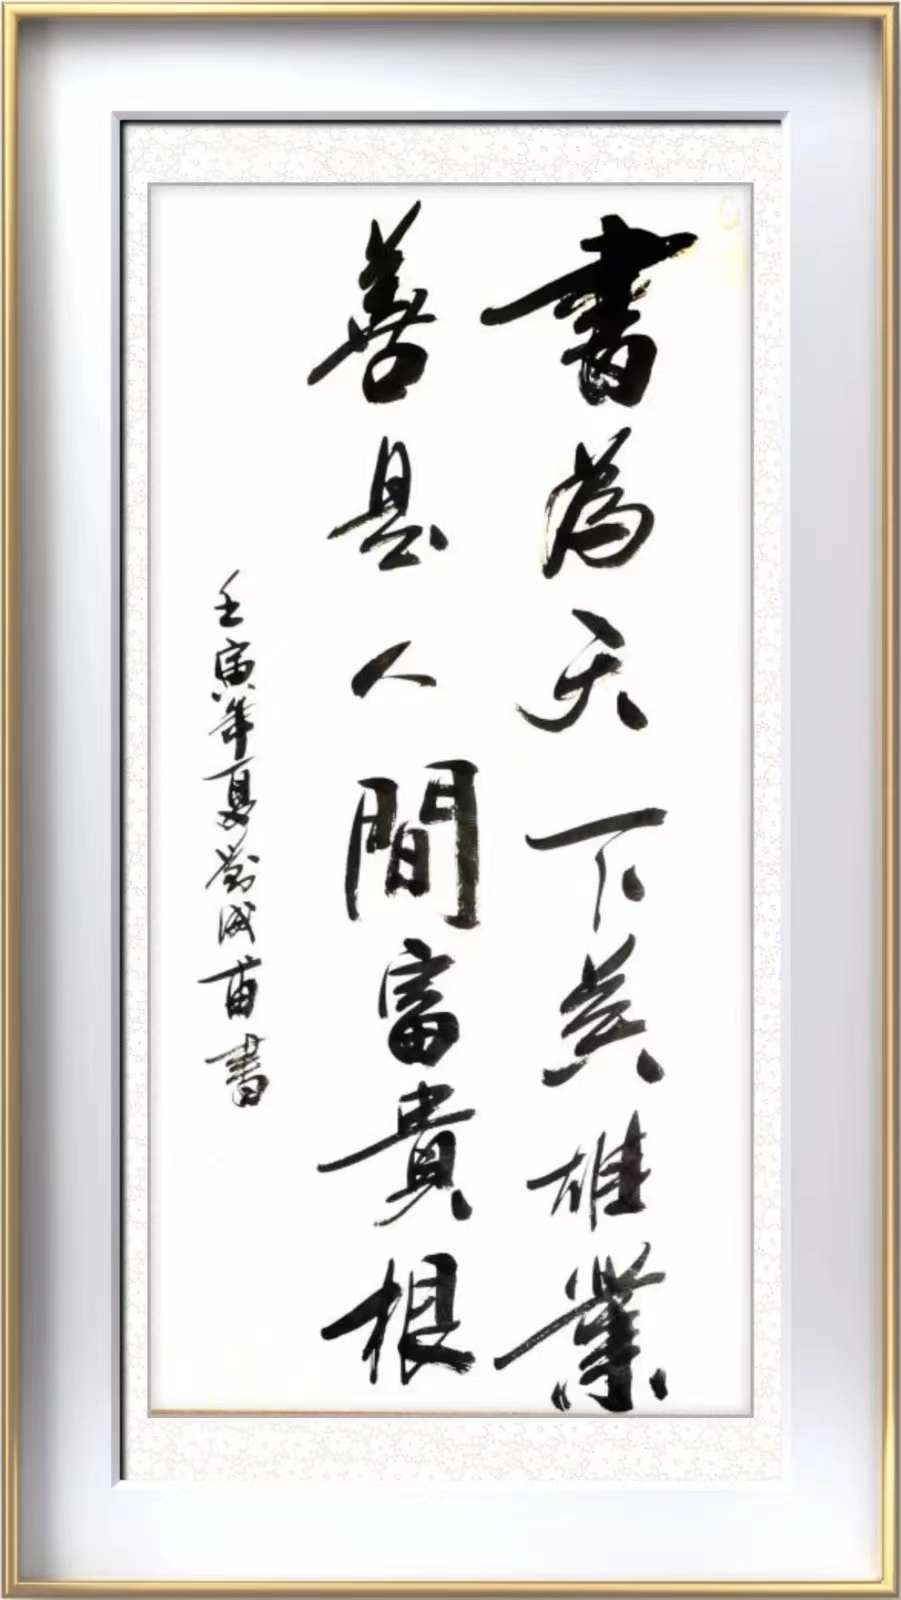 書為天下英雄業
善是人間富貴根
壬寅年夏劉成苗書